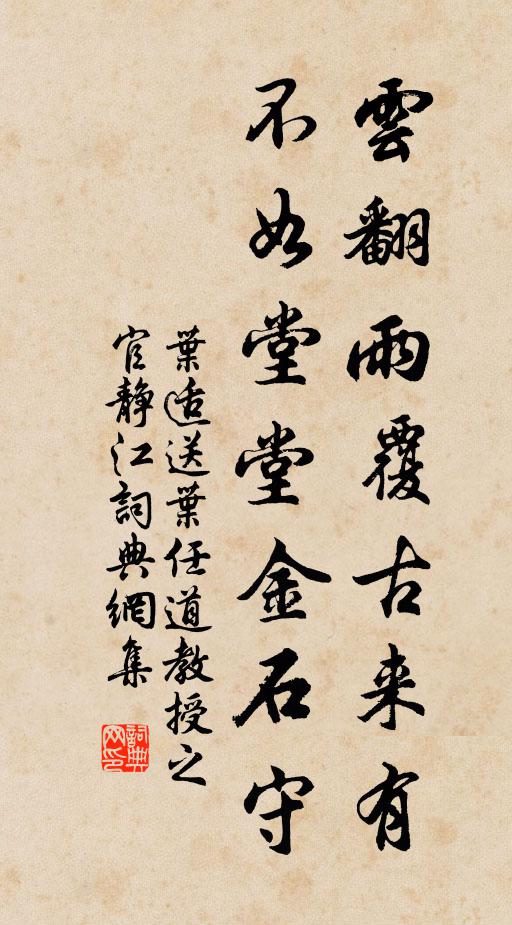 雲翻雨覆古来有
不如堂堂金石守
葉适送葉任道教授之
官静江詞典網集
詞典网印